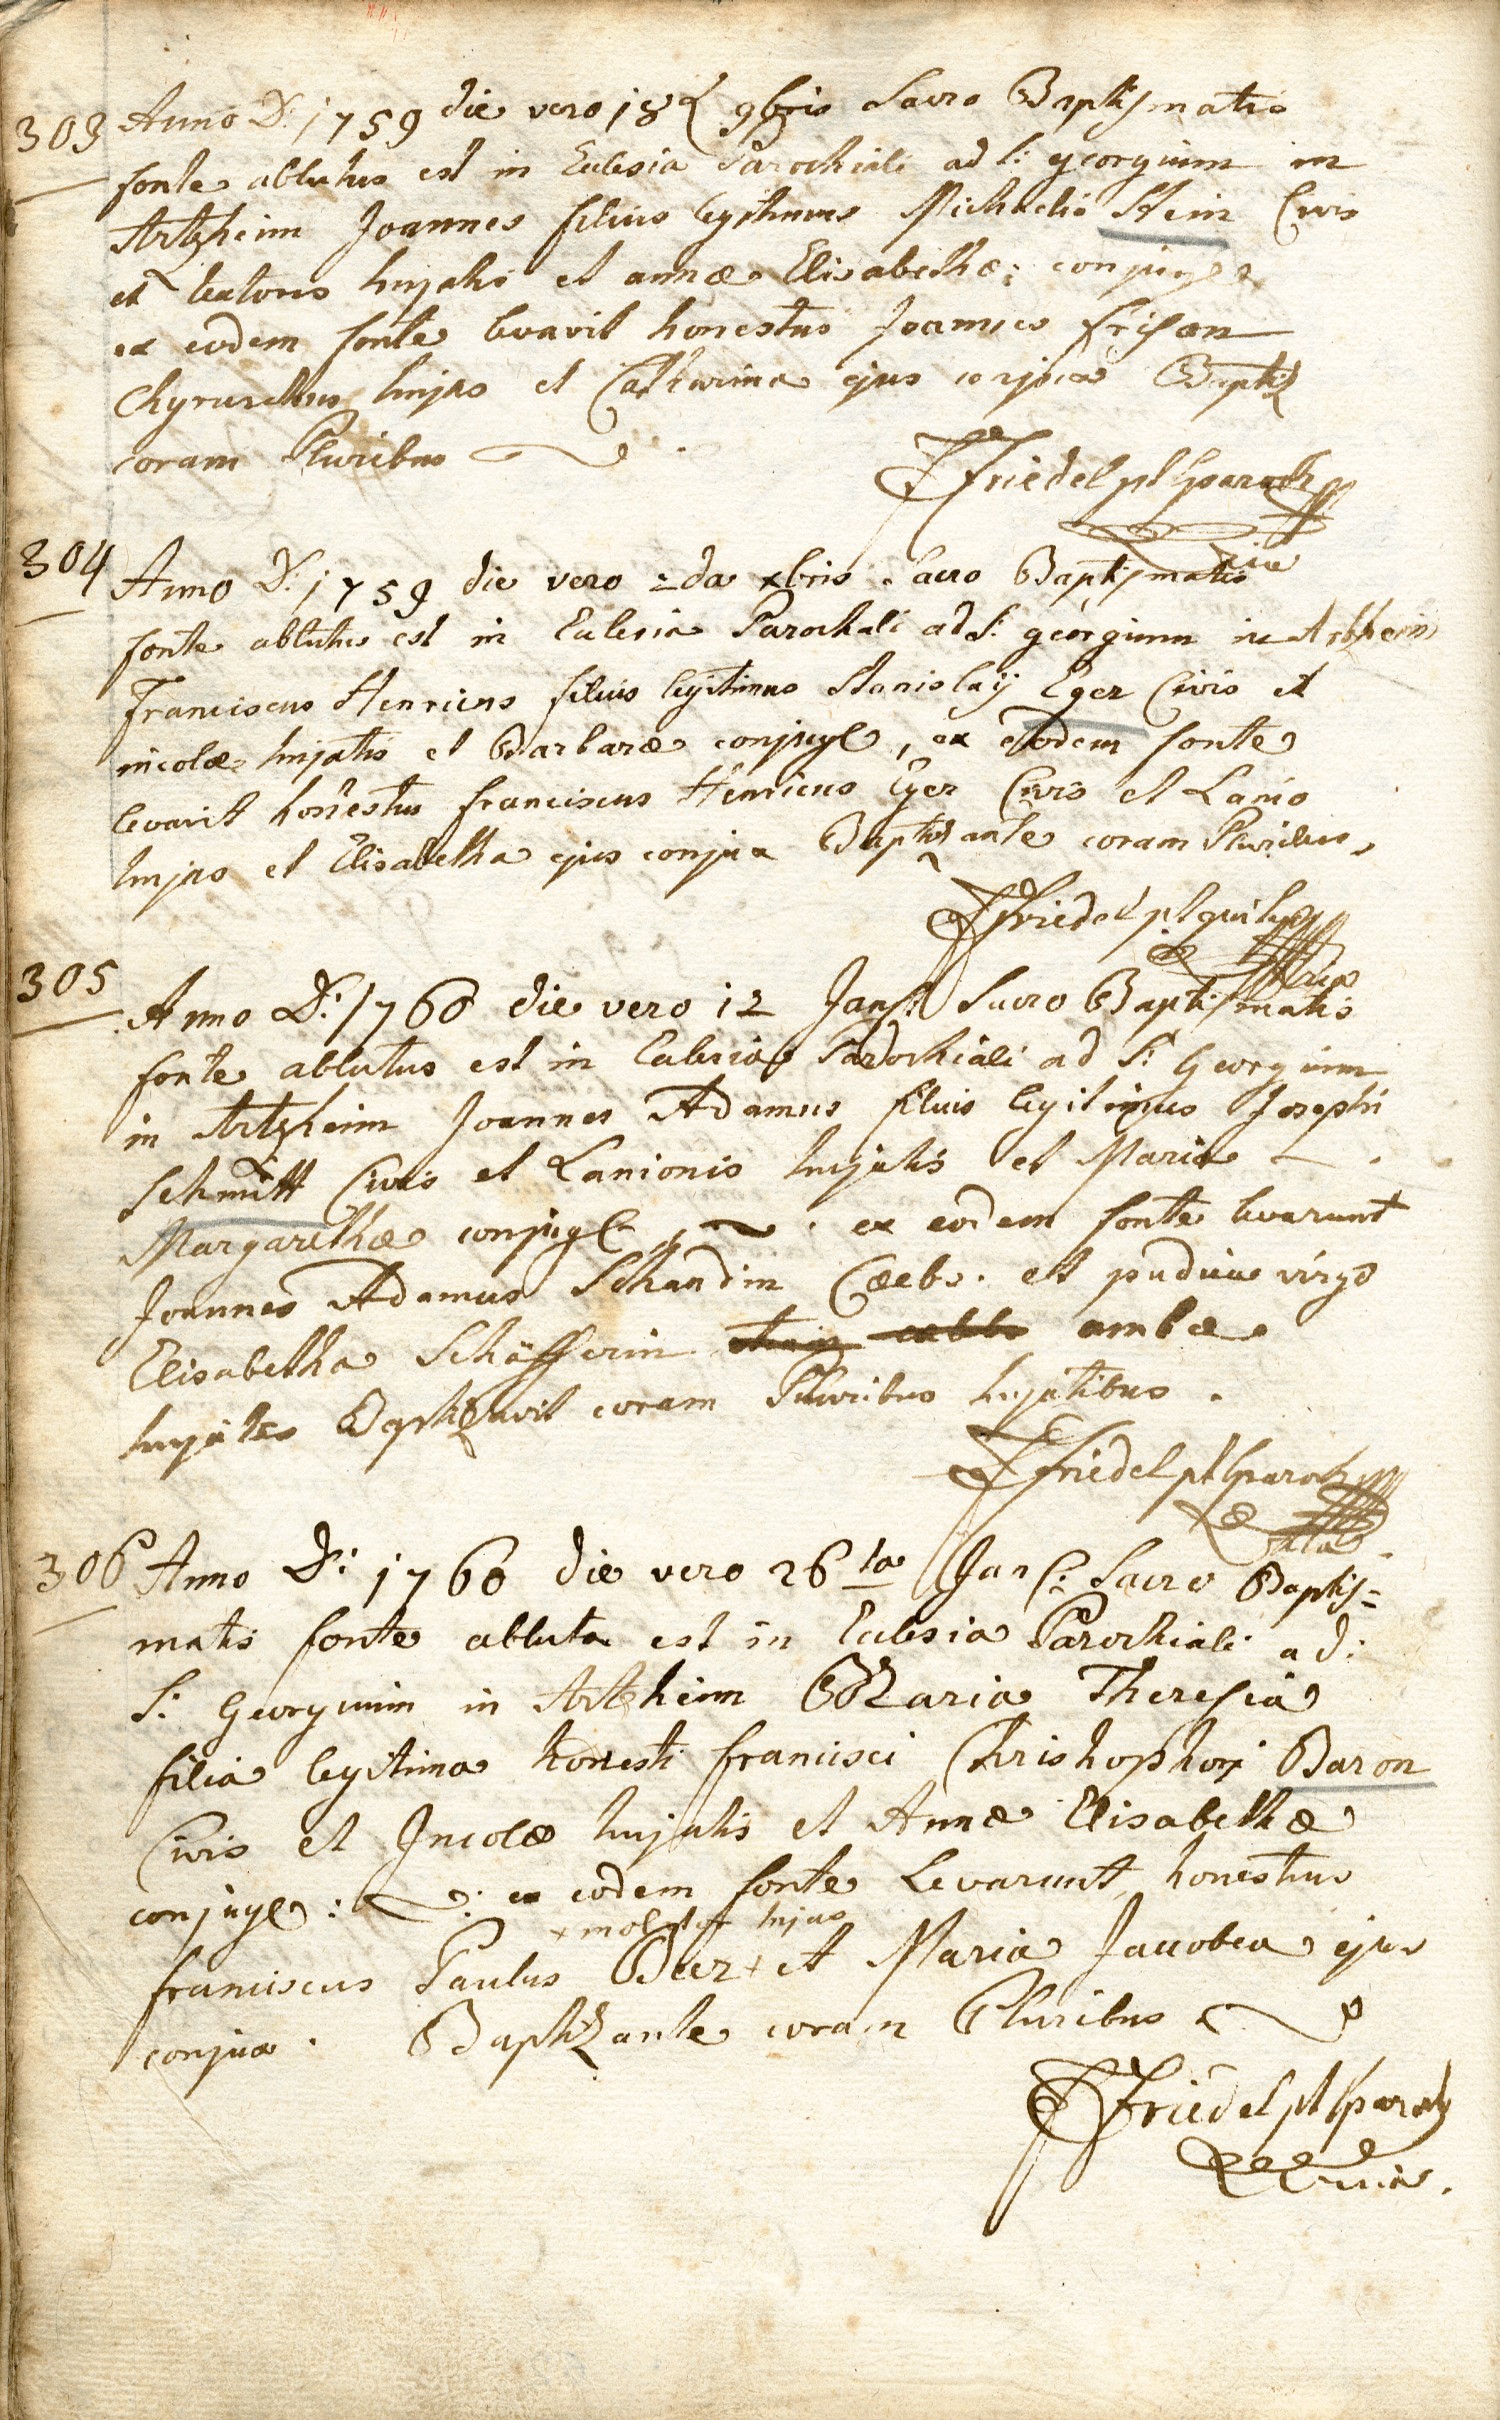 303 Anno D: 1759 die vero 18 9bris Sacro Baptismatis
fonte ablutus est in Eclesia Parochiali ad S: georgium in
Artzheim Joannes filius legitimus Michaelis Stein Civis
et textoris hujatis et annæ Elisabethæ: conjuge
ex eodem fonte levavit honestus Joannes frison
Chyrurchus hujas et Catharina ejus conjux Baptiz
coram Pluribus
JFriedel pt paroch
304 Anno D: 1759 die vero 2da xbris Sacro Baptismatis
fonte ablutus est in Eclesia Parochali ad S: georgium in Artzheim
Franciscus Henricus filius legitimus Stanislaij Eger Civis et
incolæ hujatis et Barbaræ conjuge, ex eodem fonte
levavit honestus franciscus Henricus Eger Civis et Lanio
hujas et Elisabetha ejus conjux Baptizante coram Pluribus,
JFriedel pt
305 Anno D: 1760 die vero 12 Jan Sacro Baptismatis
fonte ablutus est in Eclesia Parochiali ad S: Georgium
in Artzheim Joannes Adamus filius legitimus Josephi
Schmitt Civis et Lanionis hujatis et Mariæ
Margarethæ conjuge, ex eodem fonte levarunt
Joannes Adamus Schandin Cælebs. et pudica virgo
Elisabetha Schäfferin ambæ
hujates Baptizavit coram Pluribus hujatibus.
JFriedel pt paroch
306 Anno D: 1760 die vero 26ta Jan: Sacro Baptis=
matis fonte abluta est in Eclesia Parochiali ad:
S: Georgium in Artzheim Maria Theresia
filia legitima honesti francisci Christophori Baron
Civis et Incolæ hujatis et Annæ Elisabethæ
conjuge: ex eodem fonte Levarunt honestus
+ molitor hujas
franciscus Paulus Beer + et Maria Jacobea ejus
conjux. Baptizante coram Pluribus
JFriedel pt paroch